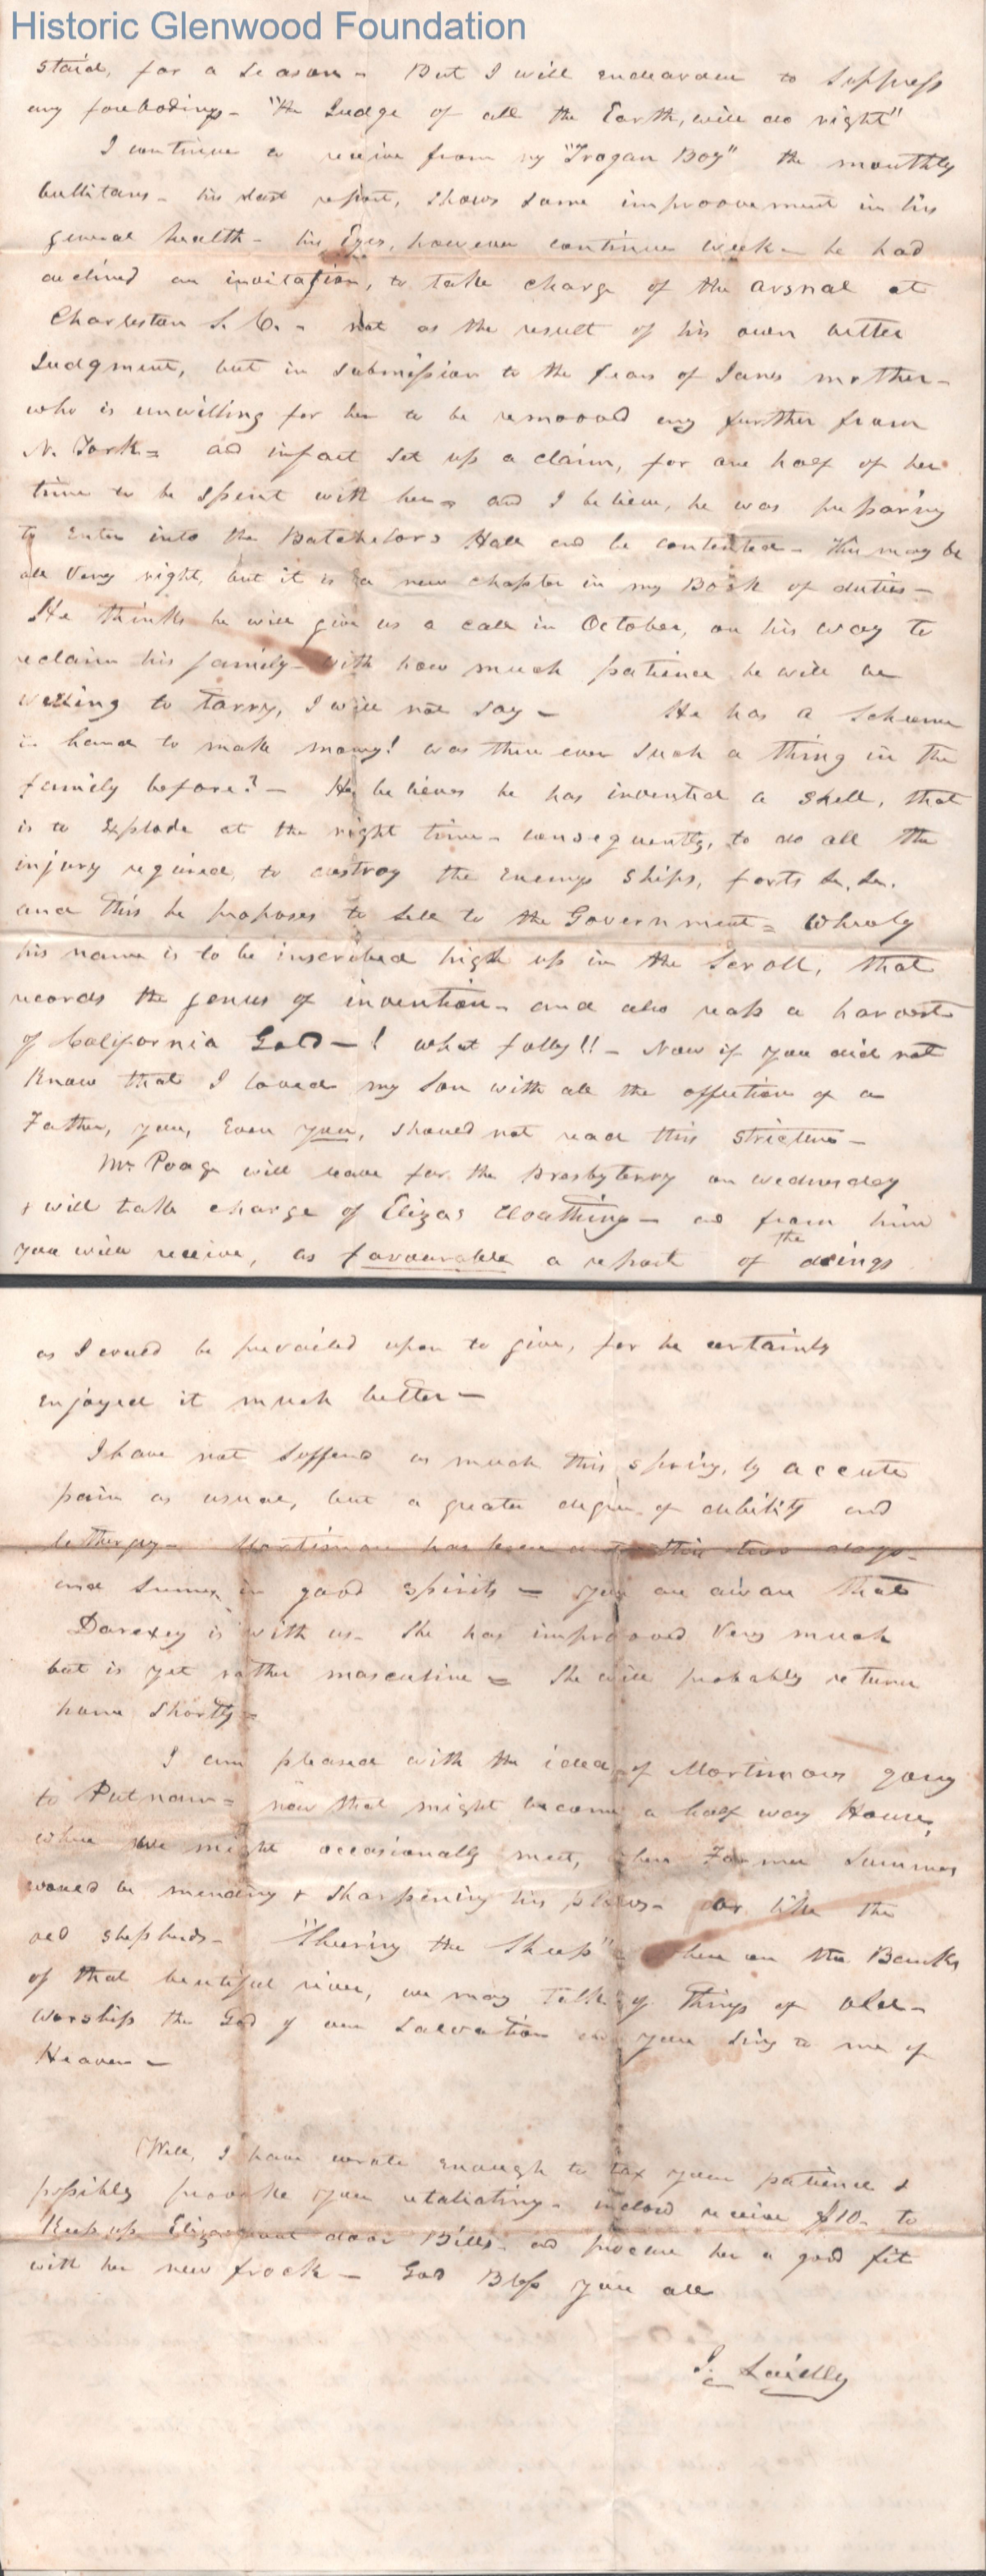 Historic Glenwood Foundation
staid, for a Season - But I will endeavour to Suppress
my forebodings - "the Judge of all the Earth, will do right"
I continue to receive from my "Trogan Boy" the monthly
bullitans - his last report, Shows Some improovement in his
general health - his Eyes, however continue week - he had
declined an invitation, to take charge of the arsnal at
Charleston S. C. - not as the result of his own better
Judgment, but in Submission to the fears of Janes mother -
who is unwilling for her to be remooved any further from
N. York = and infact Set up a claim, for one half of her
time to be Spent with her - and I believe, he was preparing
to Enter into the Batchelors Hall and be contented - this may be
all Very right, but it is a new chapter in my Book of duties -
He thinks he will give us a call in October, on his way to
reclaim his family - with how much patience he will be
willing to tarry, I will not Say - He has a Scheme
in hand to make money! was there ever Such a thing in the
family before? - He believes he has invented a Shell, that
is to Explode at the right time - consequently, to do all the
injury required, to destroy the Enemys Ships, forts &c, &c.
and this he proposes to Sell to the Government = Wheraby
his name is to be inscribed high up in the Scroll, that
records the genius of invention - and also reap a harvest
of California Gold - ! what folly!! - Now if you did not
Know that I loved my Son with all the affection of a
Father, you, Even you, Should not read this Stricture -
Mr Poage will leave for the Presbyterry on Wednesday
& will take charge of Elizas cloathing - and from him
you will receive, as favourable a report of the doings
as I could be prevailed upon to give, for he certainly
Enjoyed it much better -
I have not Suffered as much this Spring, by accute
pain as usual, but a greater degree of debility and
lethergy - Mortimore has been this two days -
and Seems in good Spirits = you are aware that
Darexey is with us - She has improoved Very much
but is yet rather masculine = She will probably return
home Shortly =
I am pleased with the idea of Mortimores going
to Putnam = now that might become a half way House,
where we might occasionally meet, when Farmer Summers
would be mending & Sharpening his plows - or like the
old Shepherds - "Sheering the Sheep" = then on the Banks
of that beautiful river, we may talk of Things of olde -
worship the God of our Salvation and you Sing to me of
Heaven -
Well, I have wrote Enough to tax your patience &
possibly provoke your retaliating - inclosd receive $10 - to
Keep up Elizas door Bills - and procure her a good fit
with her new frock - God Bless you all
J. Laidley